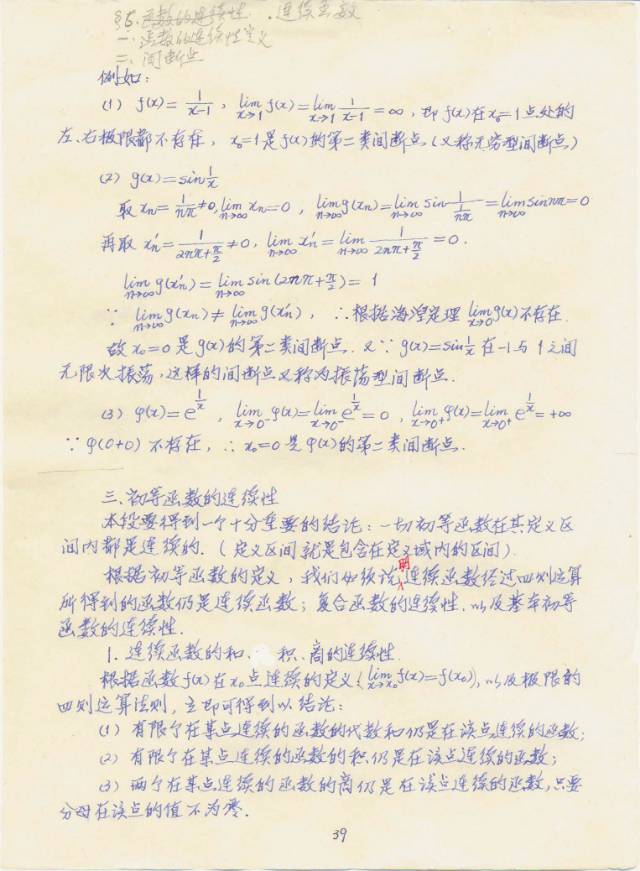 §5. 函数的连续性. 连续函数
一. 函数的连续性定义
二. 间断点
例如:
(1) f(x)= 1/(x-1) , lim_{x→1} f(x)=lim_{x→1} 1/(x-1) =∞, 即 f(x)在x₀=1点处的
左、右极限都不存在, x₀=1是f(x)的第二类间断点(又称无穷型间断点)
(2) g(x)=sin 1/x
取 xn= 1/(nπ) ≠0, lim_{n→∞} xn=0 , lim_{n→∞} g(xn)=lim_{n→∞} sin 1/(1/(nπ)) =lim_{n→∞} sin nπ=0
再取 x'n= 1/(2nπ+π/2) ≠0, lim_{n→∞} x'n=lim_{n→∞} 1/(2nπ+π/2) =0.
lim_{n→∞} g(x'n)=lim_{n→∞} sin(2nπ+π/2)= 1
∵ lim_{n→∞} g(xn)≠lim_{n→∞} g(x'n) , ∴根据海涅定理 lim_{x→0} g(x)不存在.
故 x₀=0 是 g(x)的第二类间断点. 又∵ g(x)=sin 1/x 在-1与1之间
无限次振荡,这样的间断点又称为振荡型间断点.
(3) φ(x)=e^{1/x} , lim_{x→0⁻} φ(x)=lim_{x→0⁻} e^{1/x}=0 , lim_{x→0⁺} φ(x)=lim_{x→0⁺} e^{1/x}=+∞
∵ φ(0+0) 不存在, ∴ x₀=0 是 φ(x)的第二类间断点.
三.初等函数的连续性
本段要得到一个十分重要的结论:一切初等函数在其定义区
间内都是连续的.(定义区间就是包含在定义域内的区间)
根据初等函数的定义,我们必须证明连续函数经过四则运算
所得到的函数仍是连续函数;复合函数的连续性.以及基本初等
函数的连续性.
1. 连续函数的和、积、商的连续性
根据函数f(x)在x₀点连续的定义(lim_{x→x₀} f(x)=f(x₀)),以及极限的
四则运算法则,立即可得到以结论:
(1) 有限个在某点连续的函数的代数和仍是在该点连续的函数;
(2) 有限个在某点连续的函数的积仍是在该点连续的函数;
(3) 两个在某点连续的函数的商仍是在该点连续的函数,只要
分母在该点的值不为零.
39